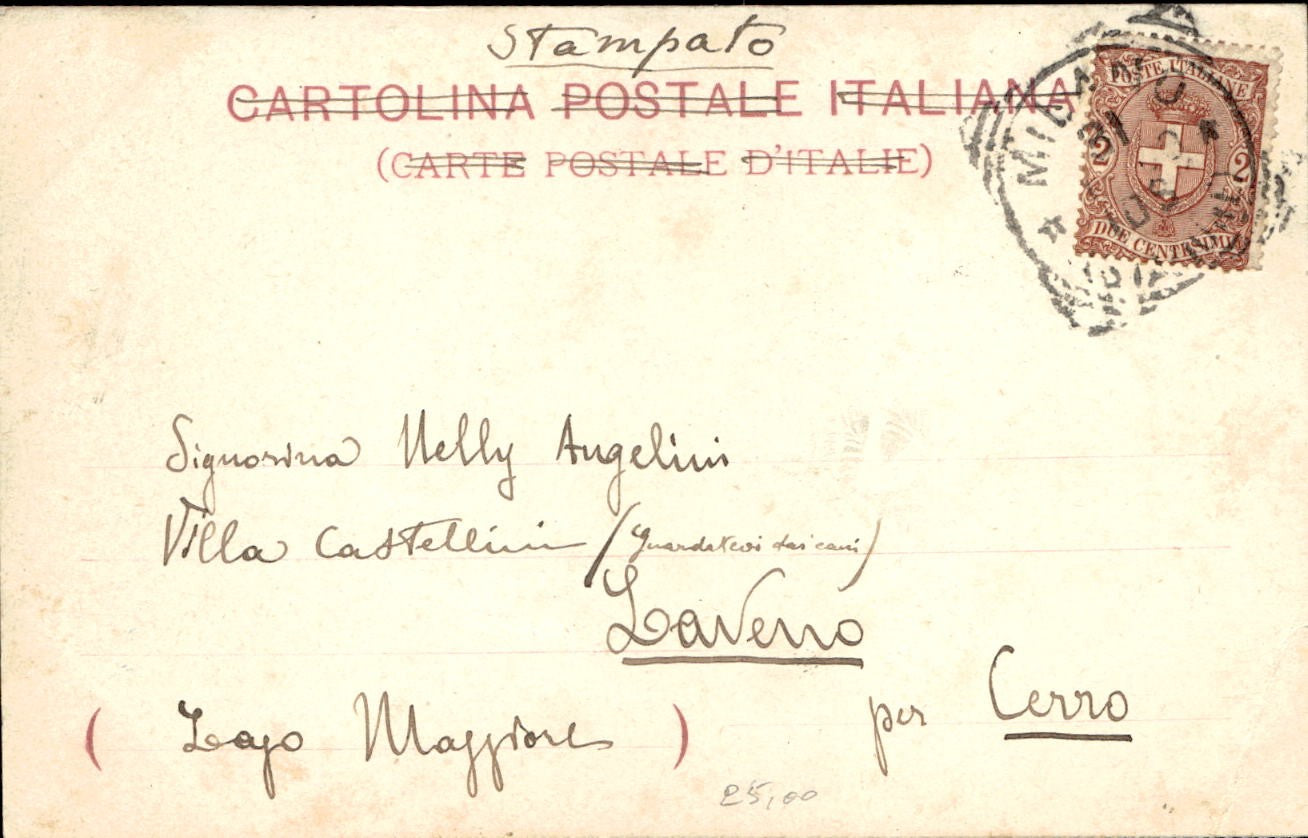 Stampato
CARTOLINA POSTALE ITALIANA
(CARTE POSTALE D'ITALIE)
POSTE ITALIANE
2 2
DUE CENTESIMI
MILANO
Signorina Nelly Angelini
Villa Castellini (guardatevi dai cani)
Laveno
per Cerro
(Lago Maggiore)
25,00